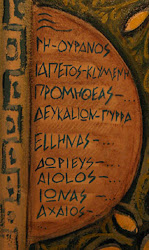 ΓΗ-ΟΥΡΑΝΟΣ
ΙΑΠΕΤΟΣ-ΚΛΥΜΕΝΗ
ΠΡΟΜΗΘΕΑΣ...
ΔΕΥΚΑΛΙΩΝ-ΠΥΡΡΑ
ΕΛΛΗΝΑΣ...
ΔΩΡΙΕΥΣ-
ΑΙΟΛΟΣ-
ΙΩΝΑΣ-
ΑΧΑΙΟΣ-...